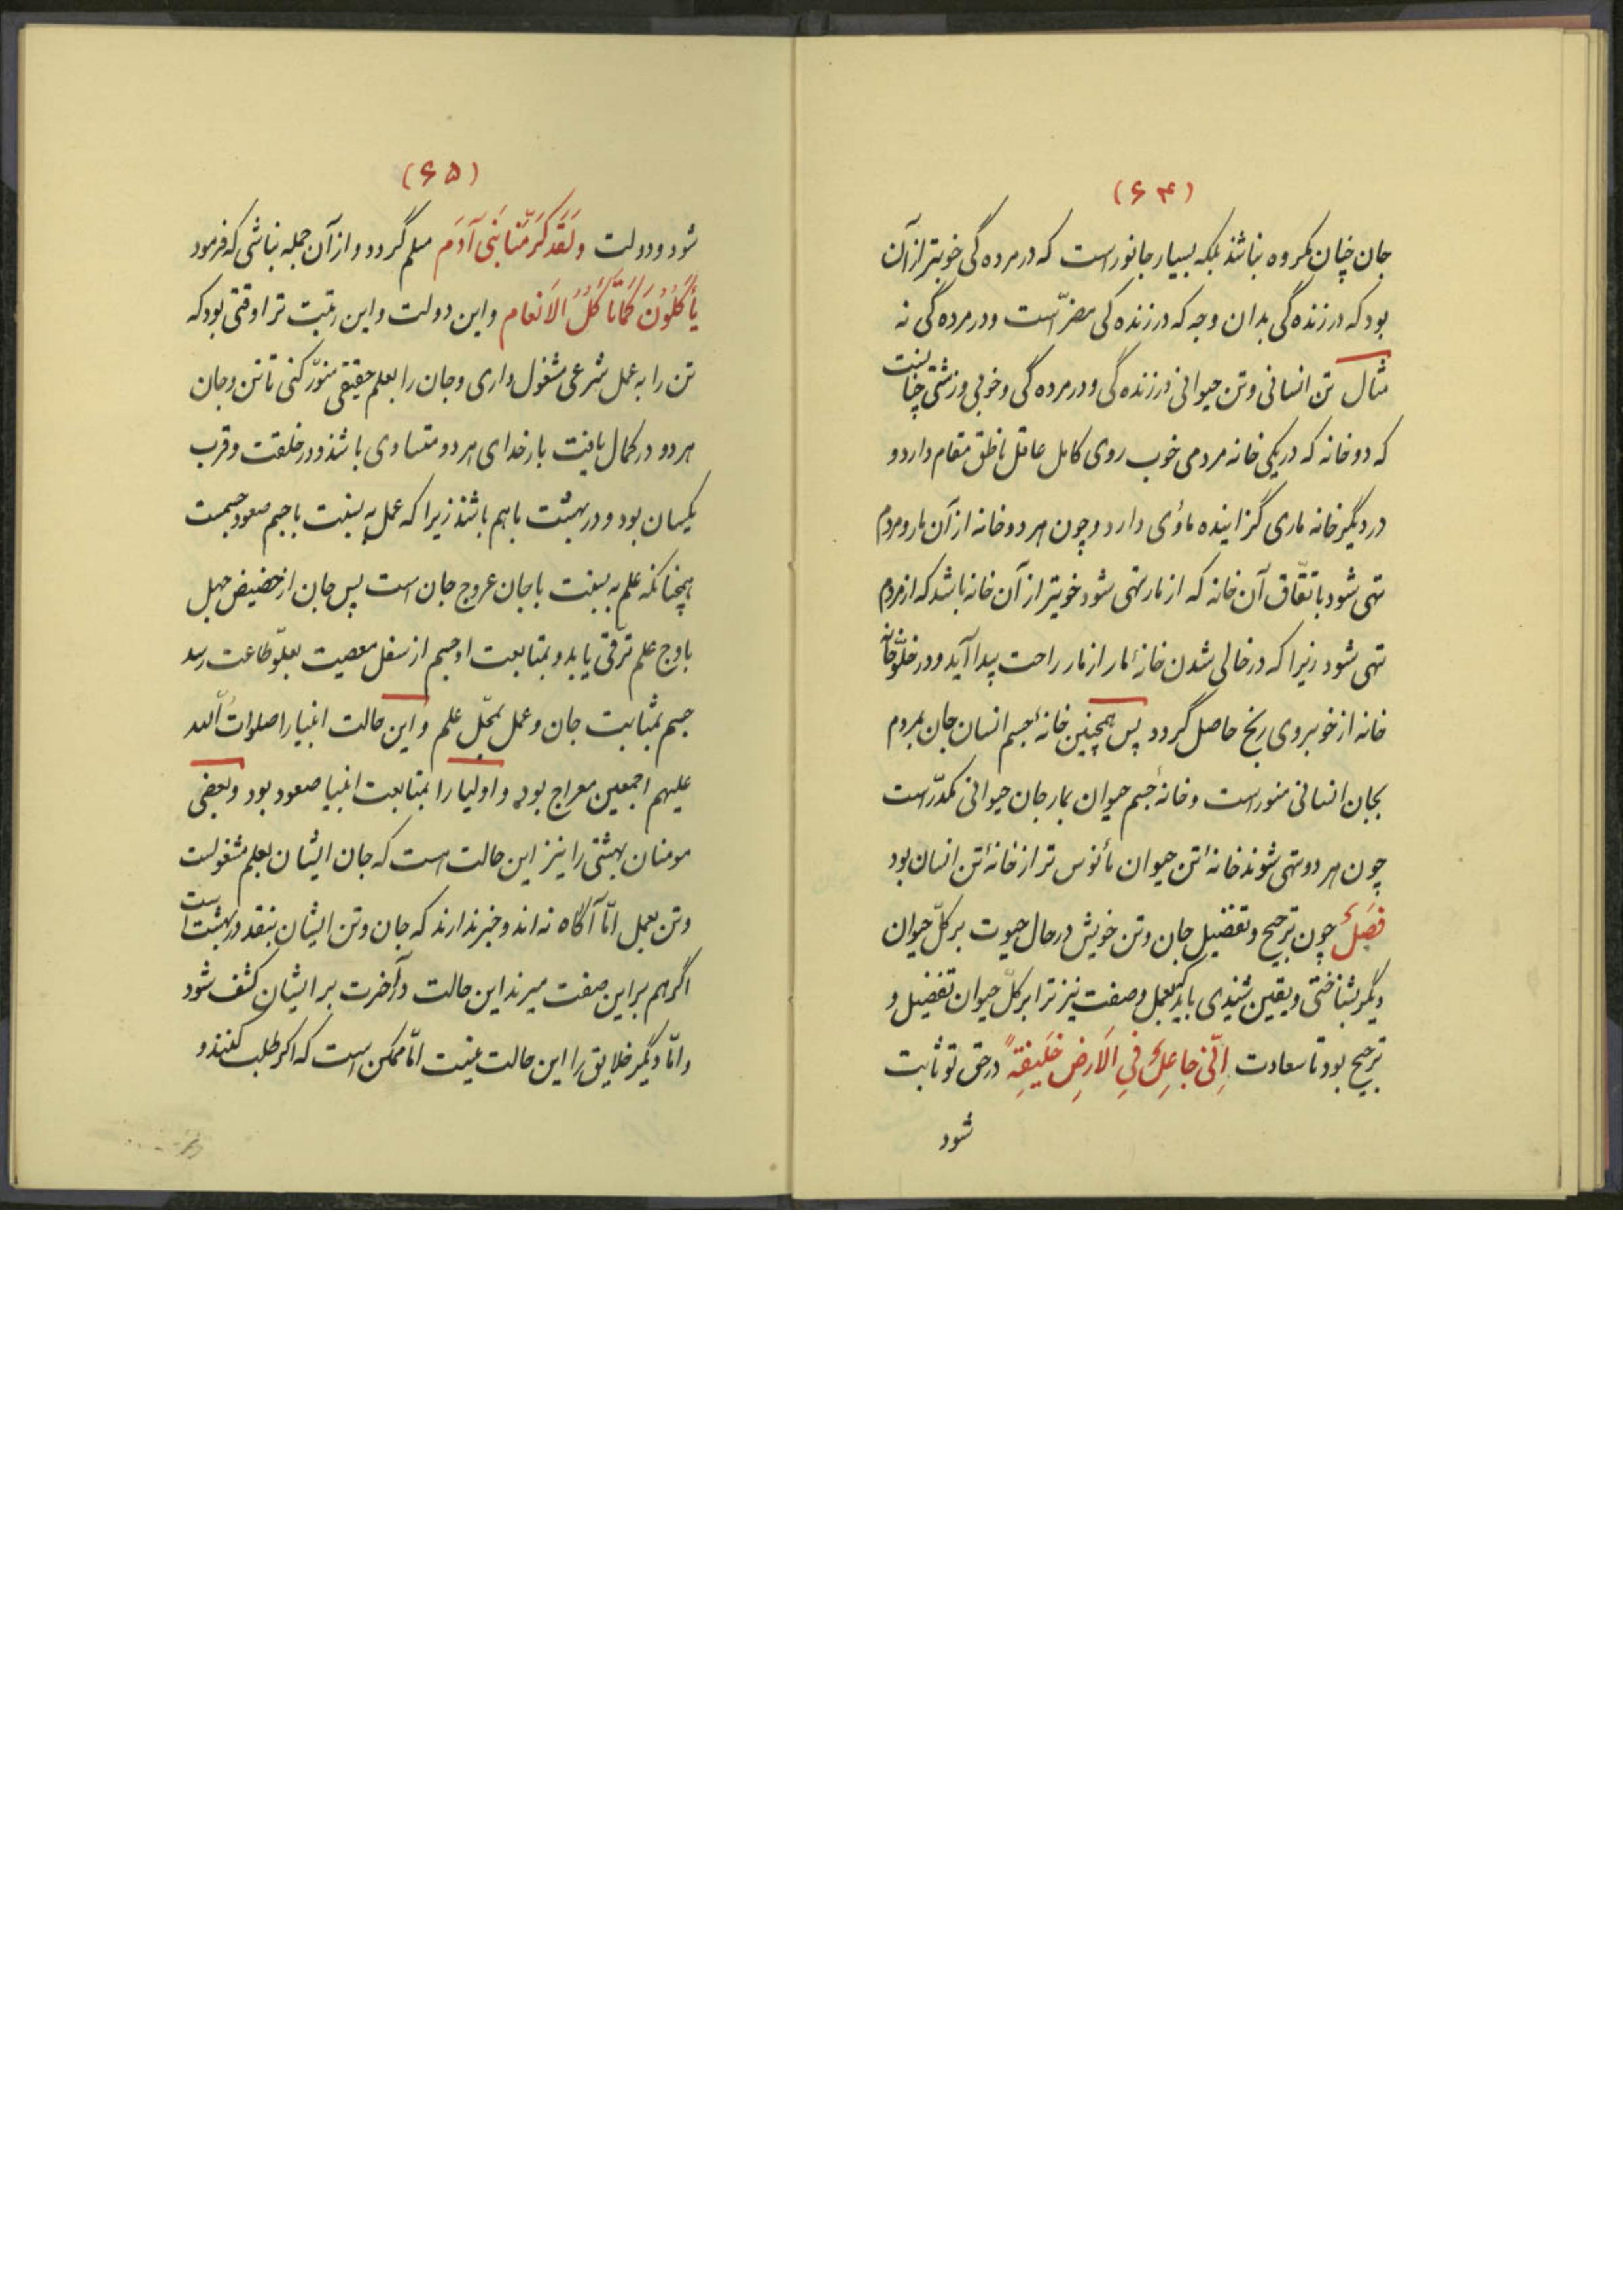 (۶۴)
جان چنان مکروه نباشند بلکه بسیار جانور است که در مرده گی خوبتر از آن
بود که در زنده گی بدان وجه که در زنده گی مضرّ است و در مرده گی نه
مثال تن انسانی و تن حیوانی در زنده گی و در مرده گی و خوبی و زشتی چنانست
که دو خانه که در یکی خانه مردمی خوب روی کامل عاقل ناطق مقام دارد و
در دیگر خانه ماری گزاینده مأوی دارد و چون هر دو خانه از آن مار و مردم
تهی شود باتفّاق آن خانه که از مار تهی شود خوبتر از آن خانه باشد که از مردم
تهی شود زیرا که در خالی شدن خانهٔ مار از مار راحت پیدا آید و در خلوّ خانه
خانه از خوبروی رنج حاصل گردد پس همچنین خانهٔ جسم انسان جان بمردم
بجان انسانی منور است و خانهٔ جسم حیوان بمار جان حیوانی مکدّر است
چون هر دو تهی شوند خانهٔ تن حیوان مأنوس تر از خانهٔ تن انسان بود
فصل چون ترجیح و تفضیل جان و تن خویش در حال حیوت بر کلّ حیوان
دیگر بشناختی و یقین شنیدی باید که بعمل و صفت نیز ترا بر کلّ حیوان تفضیل و
ترجیح بود تا سعادت اِنّی جاعِلٌ فِی الاَرضِ خَلیفِةً در حق تو ثابت
شود
(۶۵)
شود و دولت وَلَقَد کَرَمّنا بَنی آدَم مسلم گردد و از آن جمله نباشی که فرمود
یَأکُلُونَ کَمَا تَأکُلُ الاَنعام و این دولت و این رتبت ترا وقتی بود که
تن را به عمل شرعی مشغول داری و جان را بعلم حقیقی منوّر کنی تا تن و جان
هر دو در کمال یافت بار خدای هر دو متساوی باشند و در خلقت و قرب
یکسان بود و در بهشت باهم باشند زیرا که عمل به نسبت با جسم صعود جسمست
همچنانکه علم به نسبت با جان عروج جان است پس جان از حضیض جهل
باوج علم ترقّی یابد و بمتابعت او جسم از سفل معصیت بعلوّ طاعت رسد
جسم بمثابت جان و عمل بمحّل علم و این حالت انبیا را صلوات الله
علیهم اجمعین معراج بود و اولیا را بمتابعت انبیا صعود بود و بعضی
مومنان بهشتی را نیز این حالت است که جان ایشان بعلم مشغولست
و تن بعمل امّا آگاه نه اند و خبر ندارند که جان و تن ایشان بنقد در بهشت است
اگر هم بر این صفت میرند این حالت در آخرت بر ایشان کشف شود
و امّا دیگر خلایق را این حالت نیست امّا ممکن است که اگر طلب کنند و